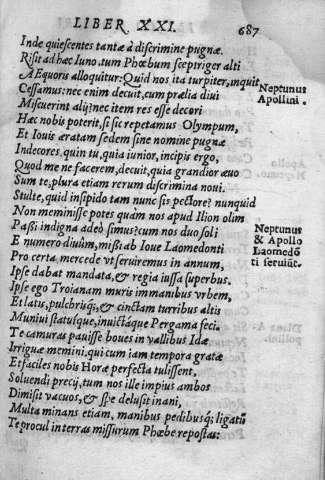 LIBER XXI. 687
Inde quiescentes tantæ à discrimine pugnæ.
Risit ad hæc Iuno. tum Phœbum sceptriger alti
Æquoris alloquitur: Quid nos ita turpiter, inquit,
Neptunus
Cessamus: nec enim decuit, cum prælia diui
Apollini.
Miscuerint alij: nec item res esse decori
Hæc nobis poterit, si sic repetamus Olympum,
Et Iouis æratam sedem sine nomine pugnæ
Indecores. quin tu, quia iunior, incipis ergo,
Quod me ne facerem, decuit, quia grandior æuo
Sum te, plura etiam rerum discrimina noui.
Stulte, quid insipido tam nunc sis pectore? nunquid
Non meminisse potes quàm nos apud Ilion olim
Passi indigna adeò simus? cum nos duo soli
Neptunus
E numero diuûm, missi ab Ioue Laomedonti
& Apollo
Pro certa mercede vt seruiremus in annum,
Laomedō
Ipse dabat mandata, & regia iussa superbus.
ti seruiūt.
Ipse ego Troianam muris immanibus vrbem,
Et latus, pulchrisq;, & cinctam turribus altis
Muniui statuique, inuictáque Pergama feci.
Te camuras pauisse boues in vallibus Idæ
Irriguæ memini, qui cum iam tempora gratæ
Et faciles nobis Horæ perfecta tulissent,
Soluendi precij, tum nos ille impius ambos
Dimisit vacuos, & spe delusit inani,
Multa minans etiam, manibus pedibusq; ligatū
Te procul in terras missurum Phœbe repostas: